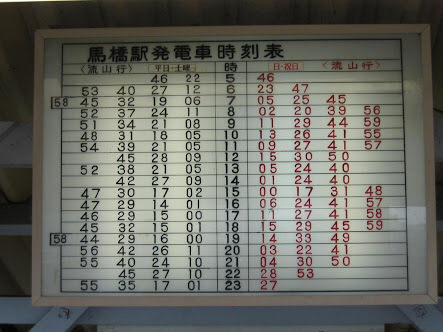 馬橋駅発電車時刻表
〈流山行〉 平日・土曜 時 日・祝日 〈流山行〉
46 22 5 46
53 40 27 12 6 23 47
58 45 32 19 06 7 05 25 45
52 37 24 11 8 02 20 39 56
51 34 21 08 9 11 29 44 59
48 31 18 05 10 13 26 41 55
54 39 21 05 11 09 27 41 57
45 28 09 12 15 30 50
52 38 21 05 13 05 24 40
42 27 09 14 01 24 40
47 30 17 02 15 00 17 31 48
47 29 14 01 16 06 24 41 57
46 29 15 00 17 11 27 41 58
45 32 15 01 18 15 29 45 59
58 44 29 16 00 19 14 33 49
56 42 26 11 20 03 22 41
55 40 24 10 21 04 30 50
45 27 10 22 28 53
55 35 17 01 23 27